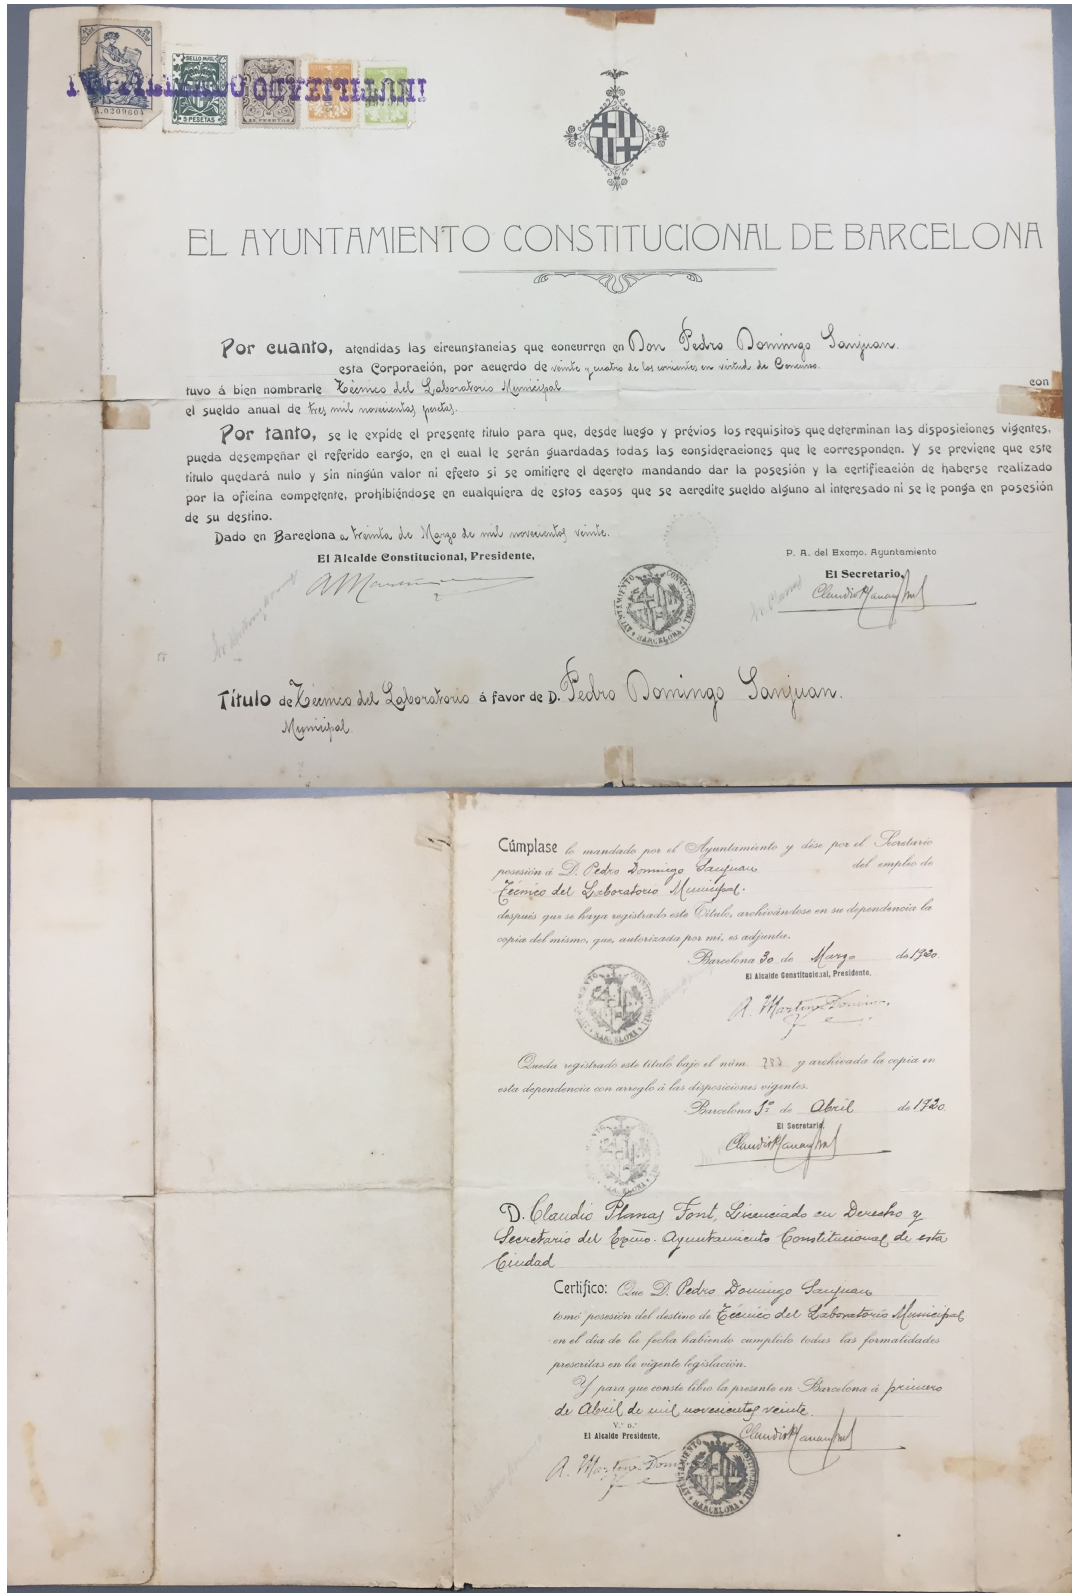 INUTILIZADO
INUTILIZADO
A.0209604
SELLO MUNL.
5 PESETAS
EL AYUNTAMIENTO CONSTITUCIONAL DE BARCELONA
Por cuanto, atendidas las circunstancias que concurren en Don Pedro Domingo Sanjuan.
esta Corporación, por acuerdo de veinte y cuatro de los corrientes, en virtud de Concurso.
tuvo á bien nombrarle Técnico del Laboratorio Municipal con
el sueldo anual de tres mil novecientas pesetas.
Por tanto, se le expide el presente título para que, desde luego y prévios los requisitos que determinan las disposiciones vigentes,
pueda desempeñar el referido cargo, en el cual le serán guardadas todas las consideraciones que le corresponden. Y se previene que este
título quedará nulo y sin ningún valor ni efecto si se omitiere el decreto mandando dar la posesión y la certificación de haberse realizado
por la oficina competente, prohibiéndose en cualquiera de estos casos que se acredite sueldo alguno al interesado ni se le ponga en posesión
de su destino.
Dado en Barcelona a treinta de Marzo de mil novecientos veinte.
El Alcalde Constitucional, Presidente,
P. A. del Excmo. Ayuntamiento
El Secretario,
AYUNTAMIENTO CONSTITUCIONAL BARCELONA
Título de Técnico del Laboratorio á favor de D. Pedro Domingo Sanjuan.
Municipal
Cúmplase lo mandado por el Ayuntamiento y dése por el Secretario
posesión á D. Pedro Domingo Sanjuan del empleo de
Técnico del Laboratorio Municipal.
después que se haya registrado este Título, archivándose en su dependencia la
copia del mismo, que, autorizada por mí, es adjunta.
Barcelona 30 de Marzo de 1920.
El Alcalde Constitucional, Presidente,
A. Martínez Domingo
AYUNTAMIENTO CONSTITUCIONAL BARCELONA
Queda registrado este título bajo el núm. y archivada la copia en
esta dependencia con arreglo á las disposiciones vigentes.
Barcelona 1º de Abril de 1920
El Secretario,
D. Claudio Planas Font, Licenciado en Derecho y
Secretario del Exmo. Ayuntamiento Constitucional de esta
Ciudad
Certifico: Que D. Pedro Domingo Sanjuan
tomó posesión del destino de Técnico del Laboratorio Municipal
en el día de la fecha habiendo cumplido todas las formalidades
prescritas en la vigente legislación.
Y para que conste libro la presente en Barcelona á primero
de Abril de mil novecientos veinte.
V.º B.º
El Alcalde Presidente,
A. Martínez Domingo
AYUNTAMIENTO CONSTITUCIONAL BARCELONA